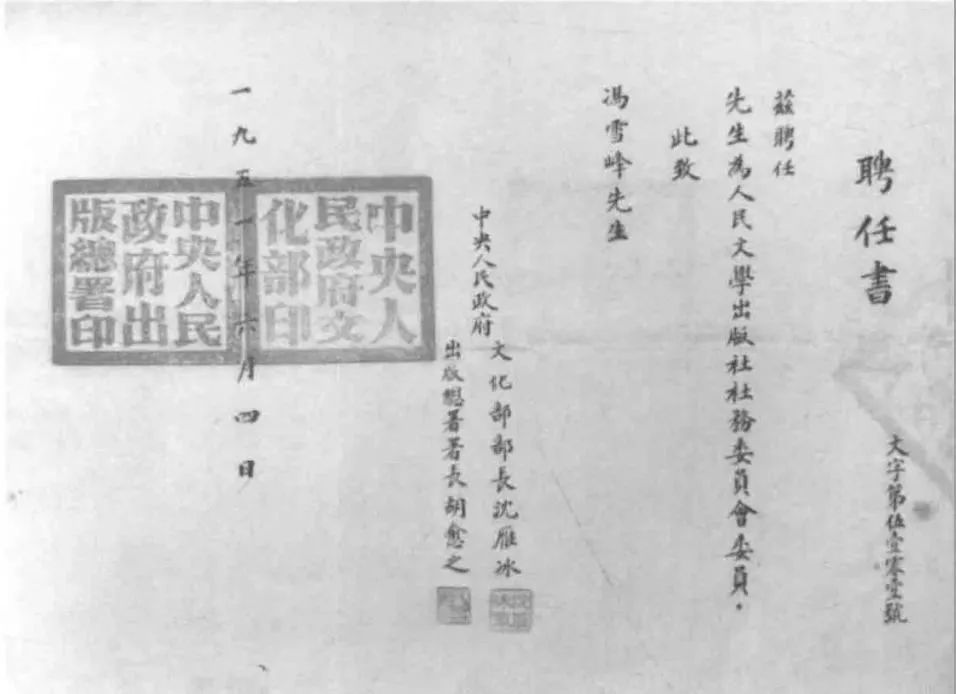 聘任書
文字第伍壹零壹號
茲聘任
先生為人民文學出版社社務委員會委員。
此致
馮雪峰先生
中央人民政府
文化部部長沈雁冰
出版總署署長胡愈之
中央人民政府文化部印
中央人民政府出版總署印
一九五一年六月四日